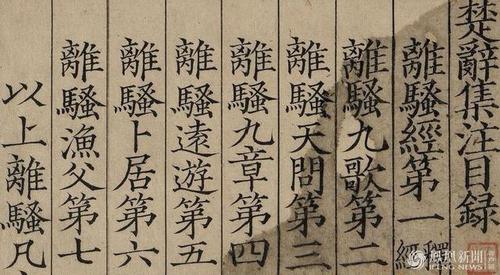 楚辭集注目録
離騷經第一
離騷九歌第二
離騷天問第三
離騷九章第四
離騷遠遊第五
離騷卜居第六
離騷漁父第七
以上離騷凡
鳳凰新聞
IFENG NEWS